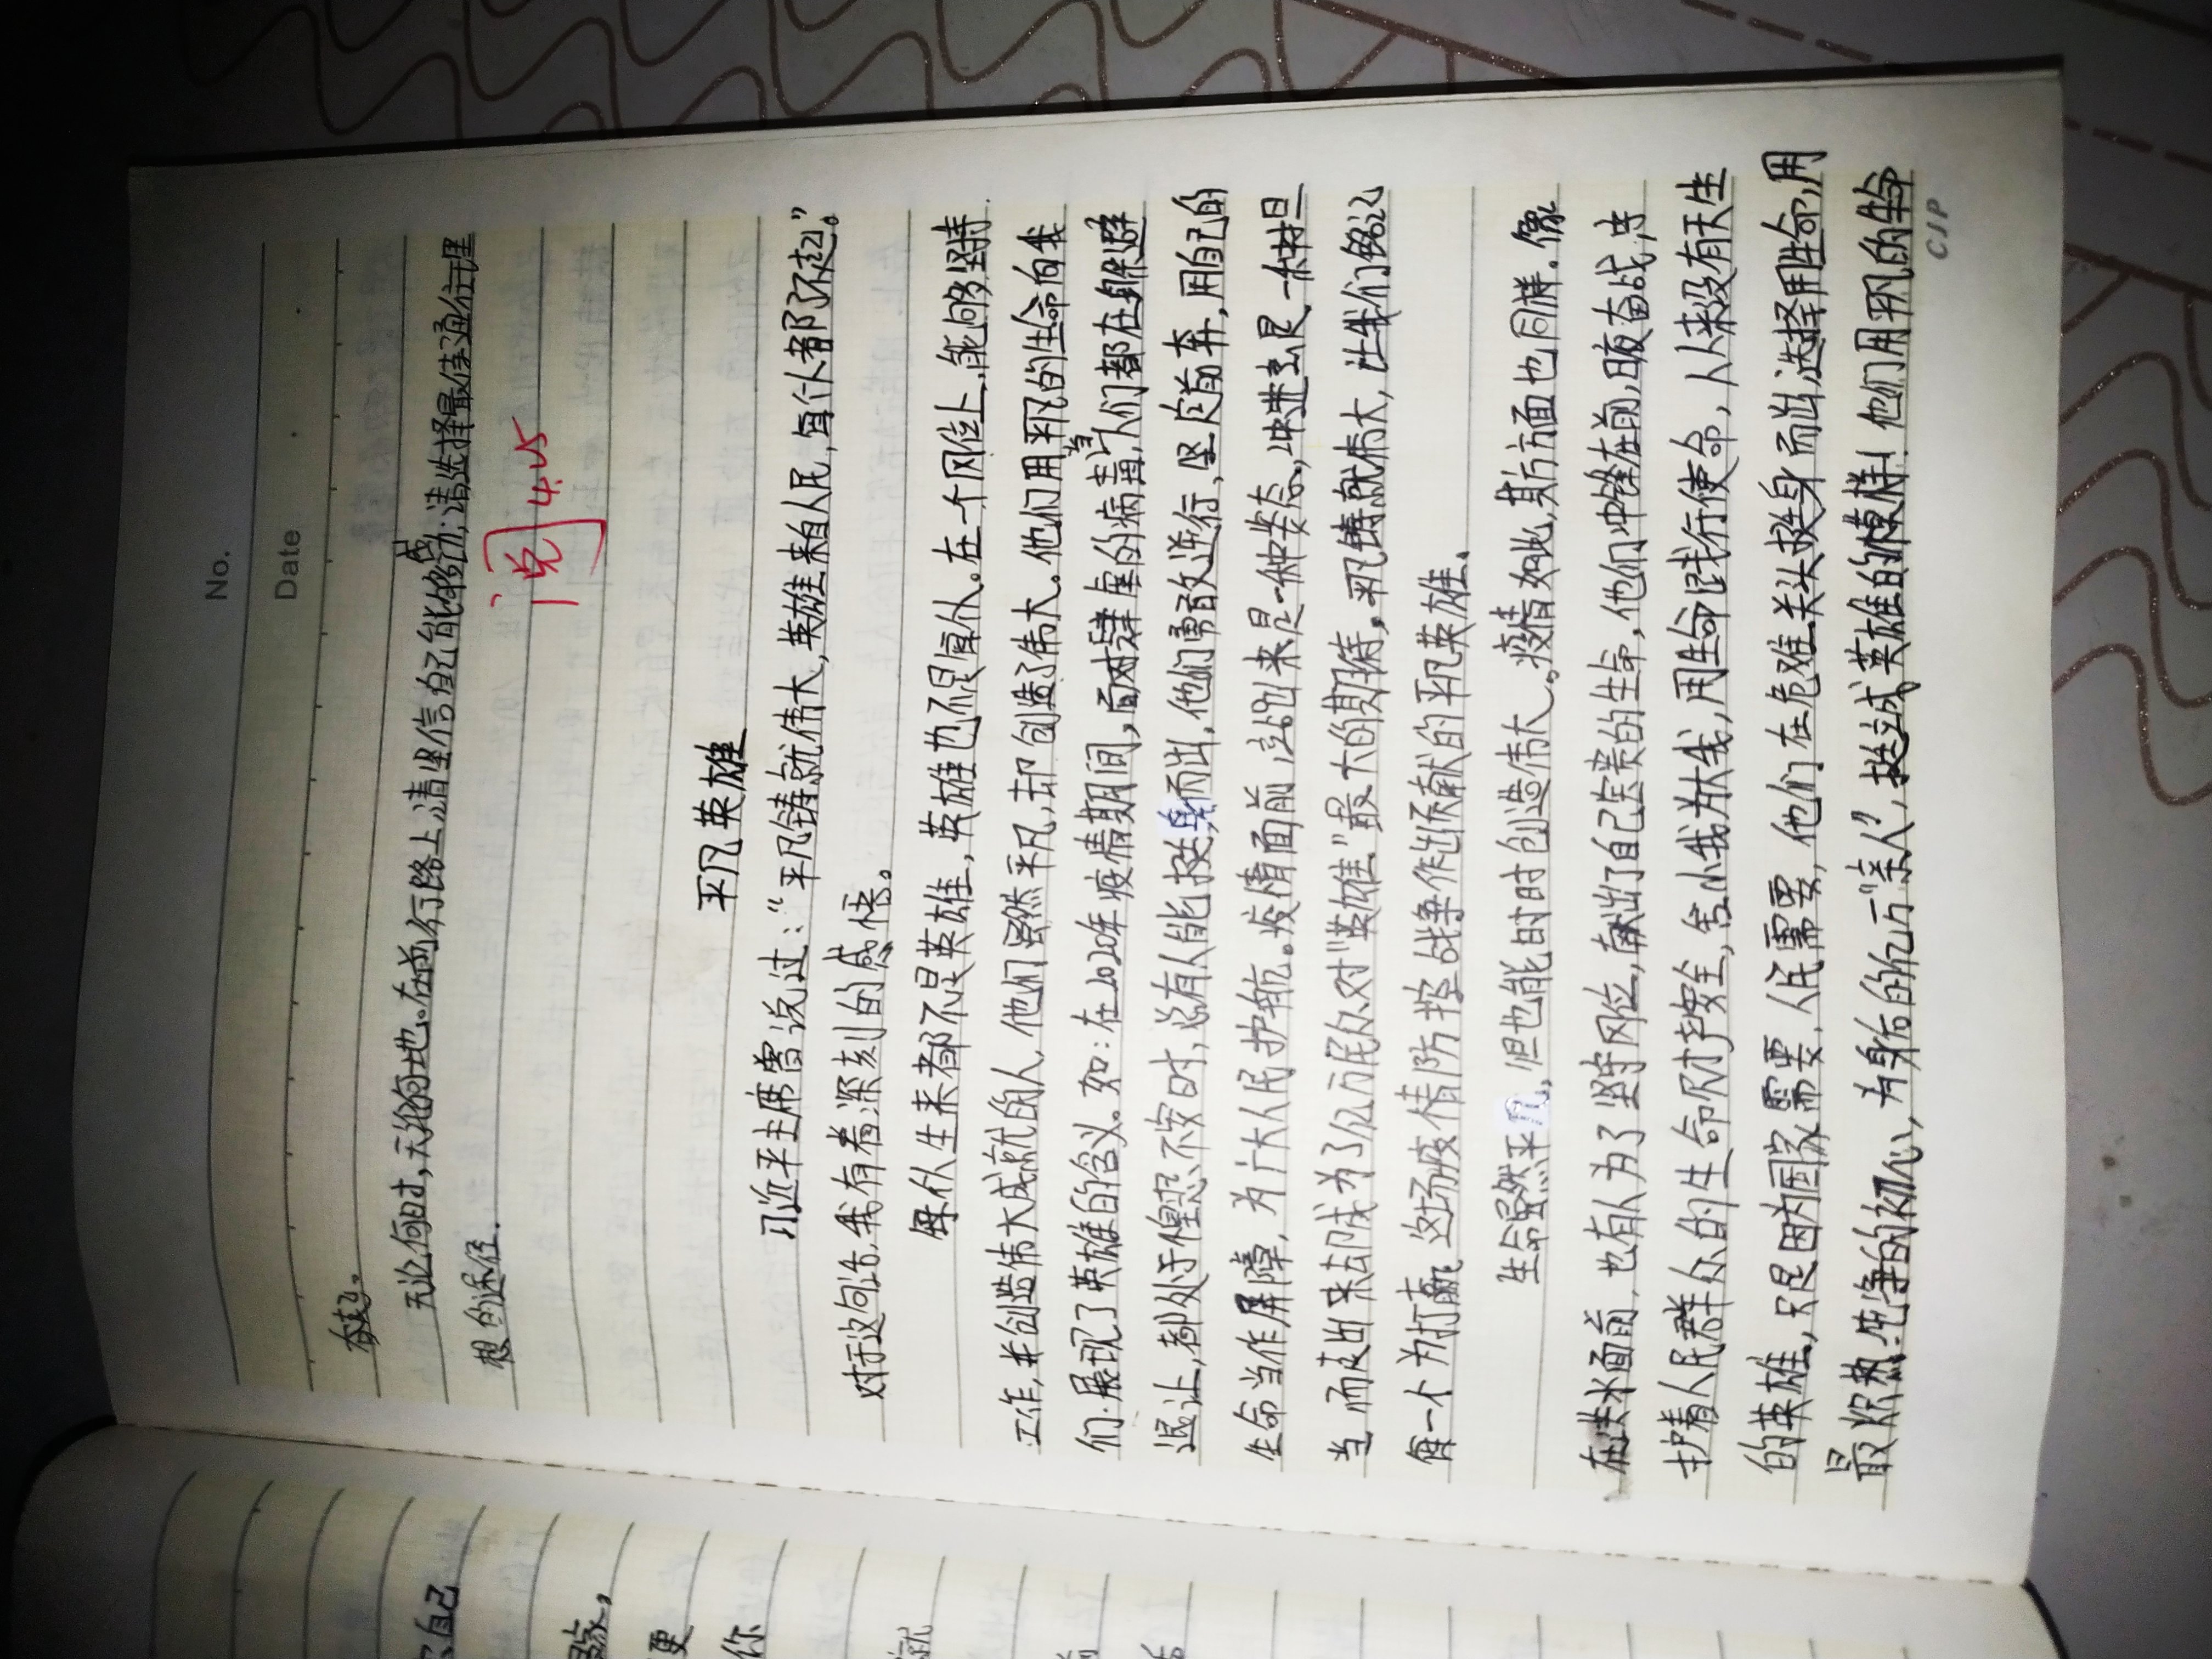 No.
Date
奋起。
无论何时,无论何地。在前行路上,请坚信自己能够成功;请选择最值得通往理
想的途径.
阅 4.25
平凡英雄
习近平主席曾说过:“平凡铸就伟大,英雄来自人民,每个人都了不起。”
对于这句话,我有着深刻的感悟。
每个人生来都不是英雄,英雄也不是富人。在一个岗位上,能够坚持
工作,并创造伟大成就的人,他们虽然平凡,却创造了伟大。他们用平凡的生命向我
们展现了英雄的含义。如:在2020年疫情期间,面对肆虐的病毒,当人们都在躲避
退让,都处于惶恐不安时,总有人能挺身而出,他们勇敢逆行,坚定前奔,用自己的
生命当作屏障,为广大人民护航。疫情面前,站出来是一种姿态,冲进去是一种担
当,而返出来却成为了亿万民众对“英雄”最大的期待。平凡铸就伟大,让我们铭记
每一个为打赢这场疫情防控战争作出贡献的平凡英雄。
生命虽然平凡,但也能时时创造伟大。疫情如此,其方面也同样。像
在洪水面前,也有人为了坚守岗位,献出了自己宝贵的生命,他们冲锋在前,日夜奋战,守
护着人民群众的生命财产安全,舍小我为大我,用生命践行使命,人从来没有天生
的英雄,只是因为国家需要,人民需要,他们在危难关头挺身而出,选择用生命,用
最炽热,纯净的初心,为身后的亿万“亲人”,挺立成英雄的模样!他们用平凡的生命
CJP
自己
缘,
更
你
就